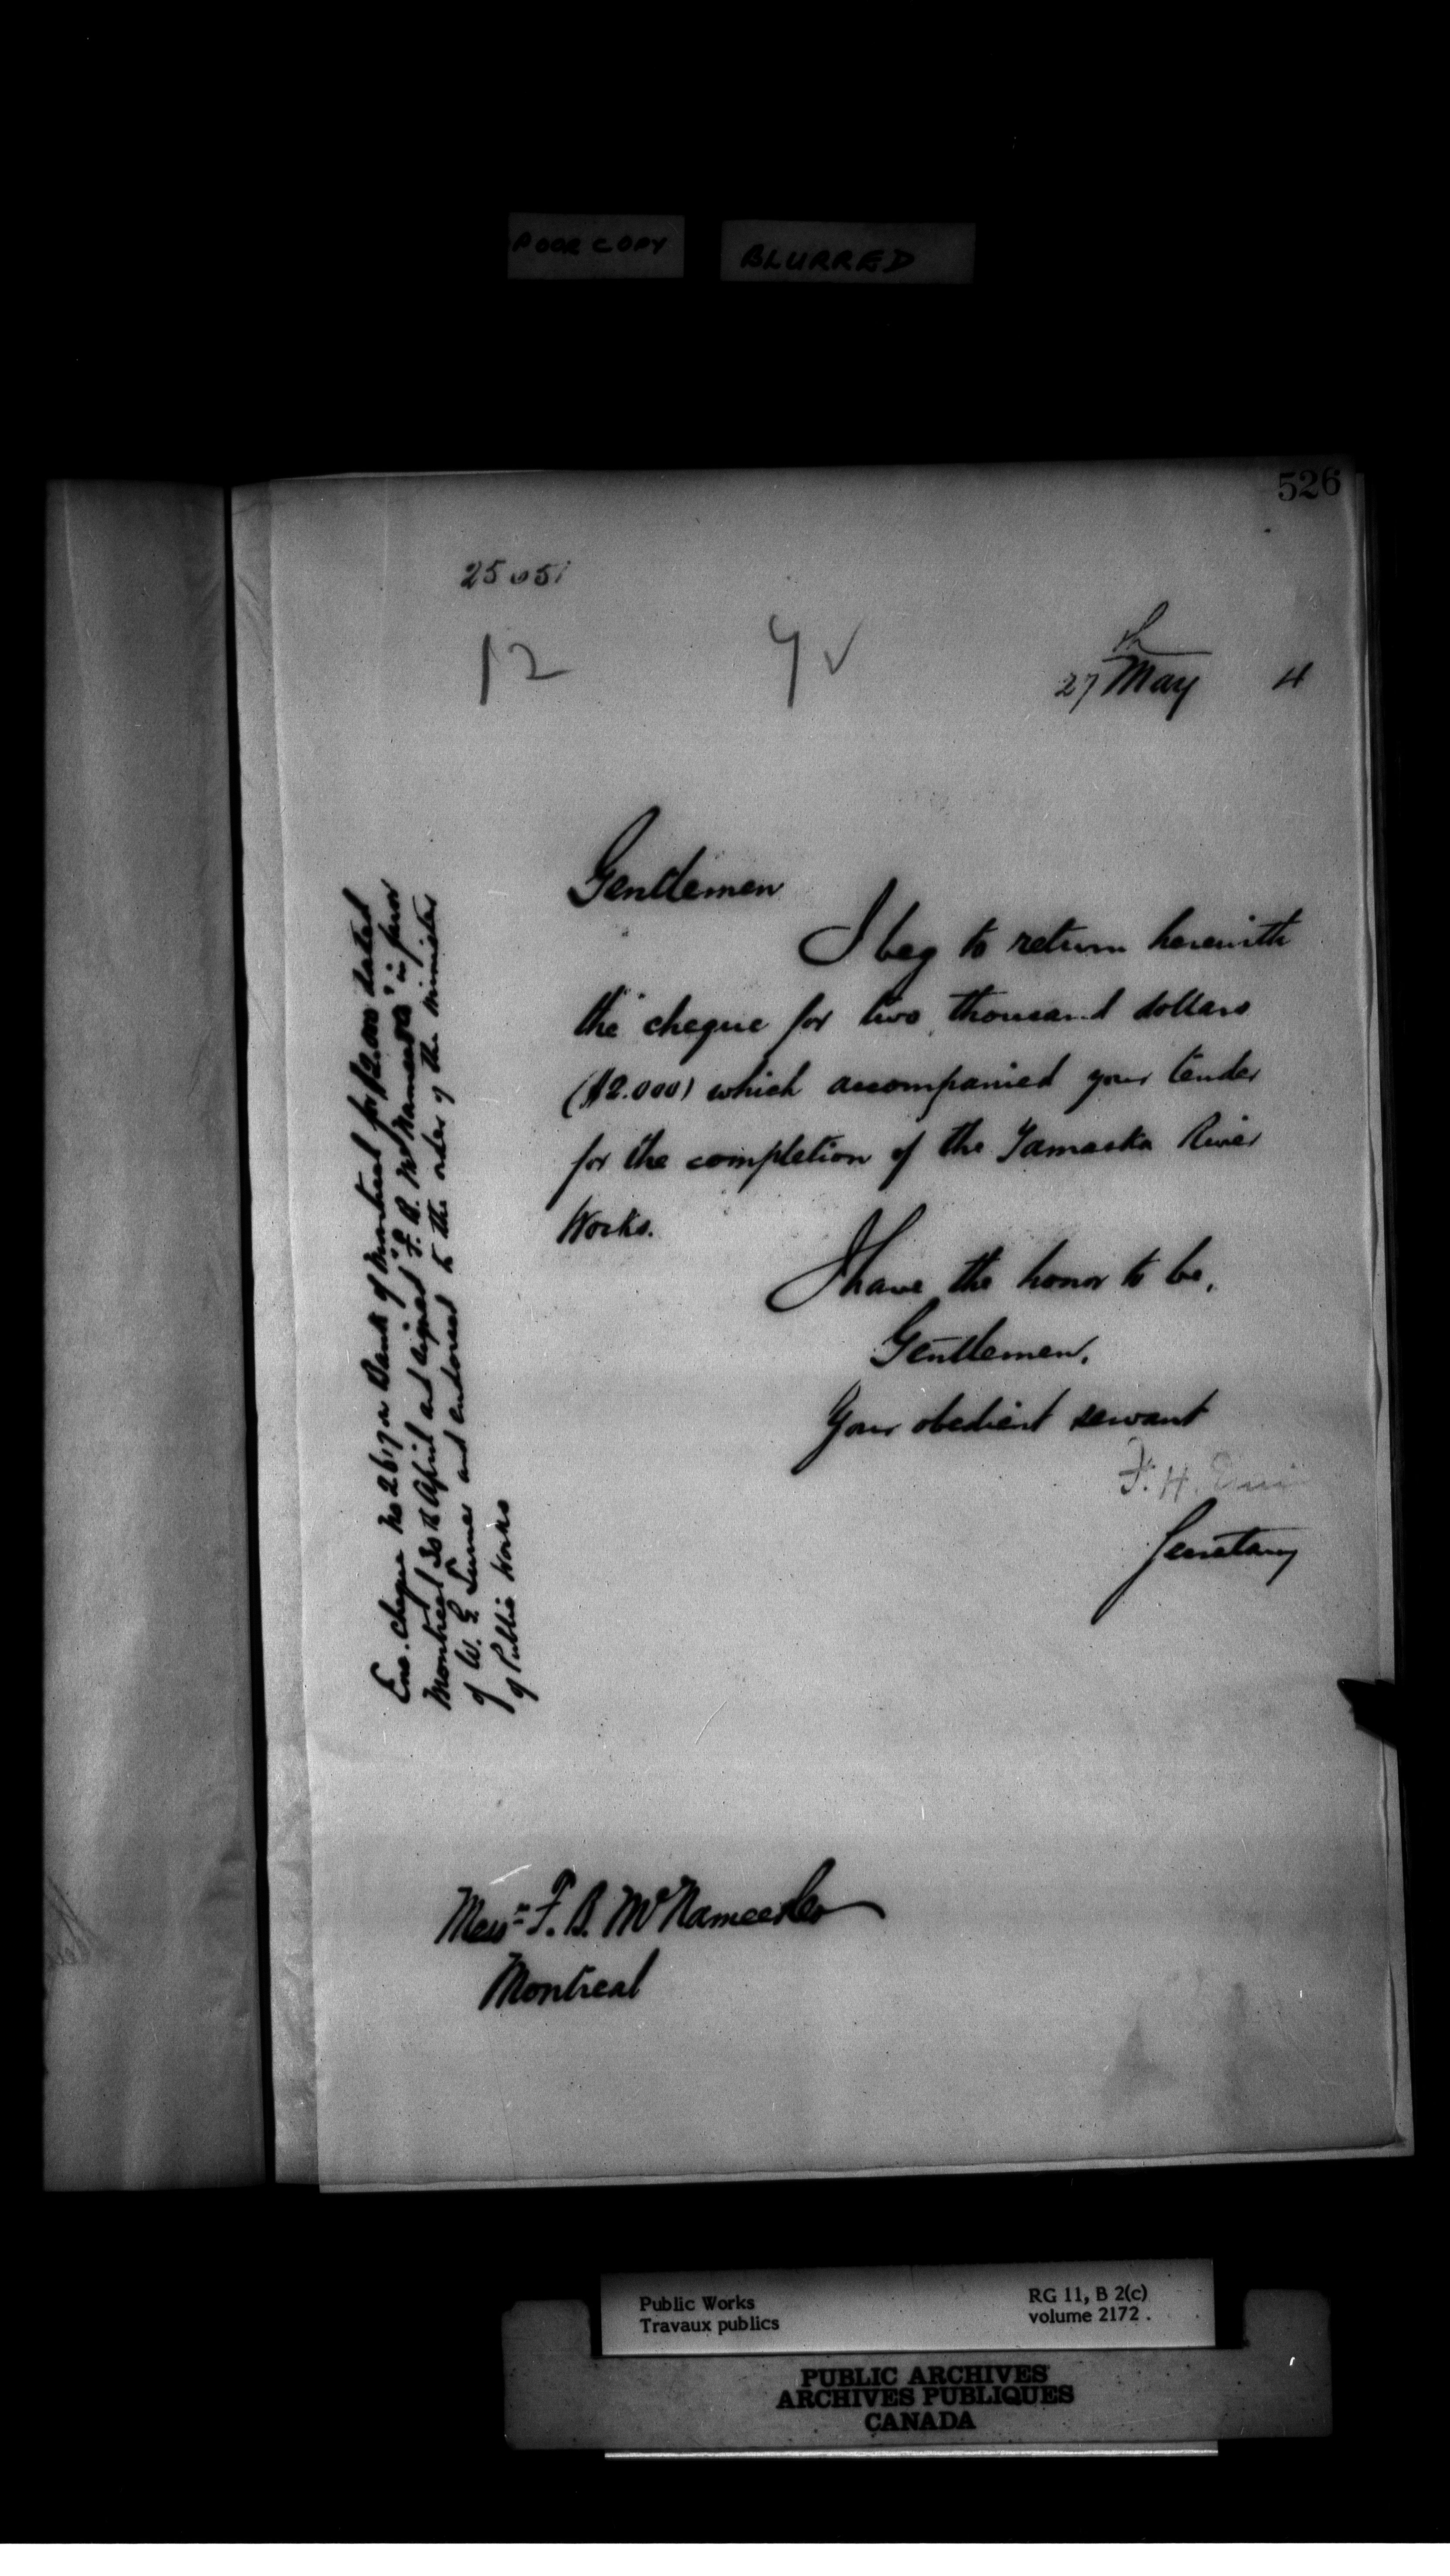 POOR COPY BLURRED
526
25051
12 9✓
27th May 4
Gentlemen
I beg to return herewith
the cheque for two thousand dollars
($2.000) which accompanied your tender
for the completion of the Yamaska River
Works.
I have the honor to be,
Gentlemen,
Your obedient servant
F. H. Ennis
Secretary
Enc. cheque No 2617 a Bank of Montreal for $2.000 dated
Montreal 30th April and signed "F. B. McNamee & Co" in favor
of W. E. Turner and endorsed to the order of the Minister
of Public Works
Messrs F. B. McNamee & Co
Montreal
Public Works RG 11, B 2(c)
Travaux publics volume 2172.
PUBLIC ARCHIVES
ARCHIVES PUBLIQUES
CANADA